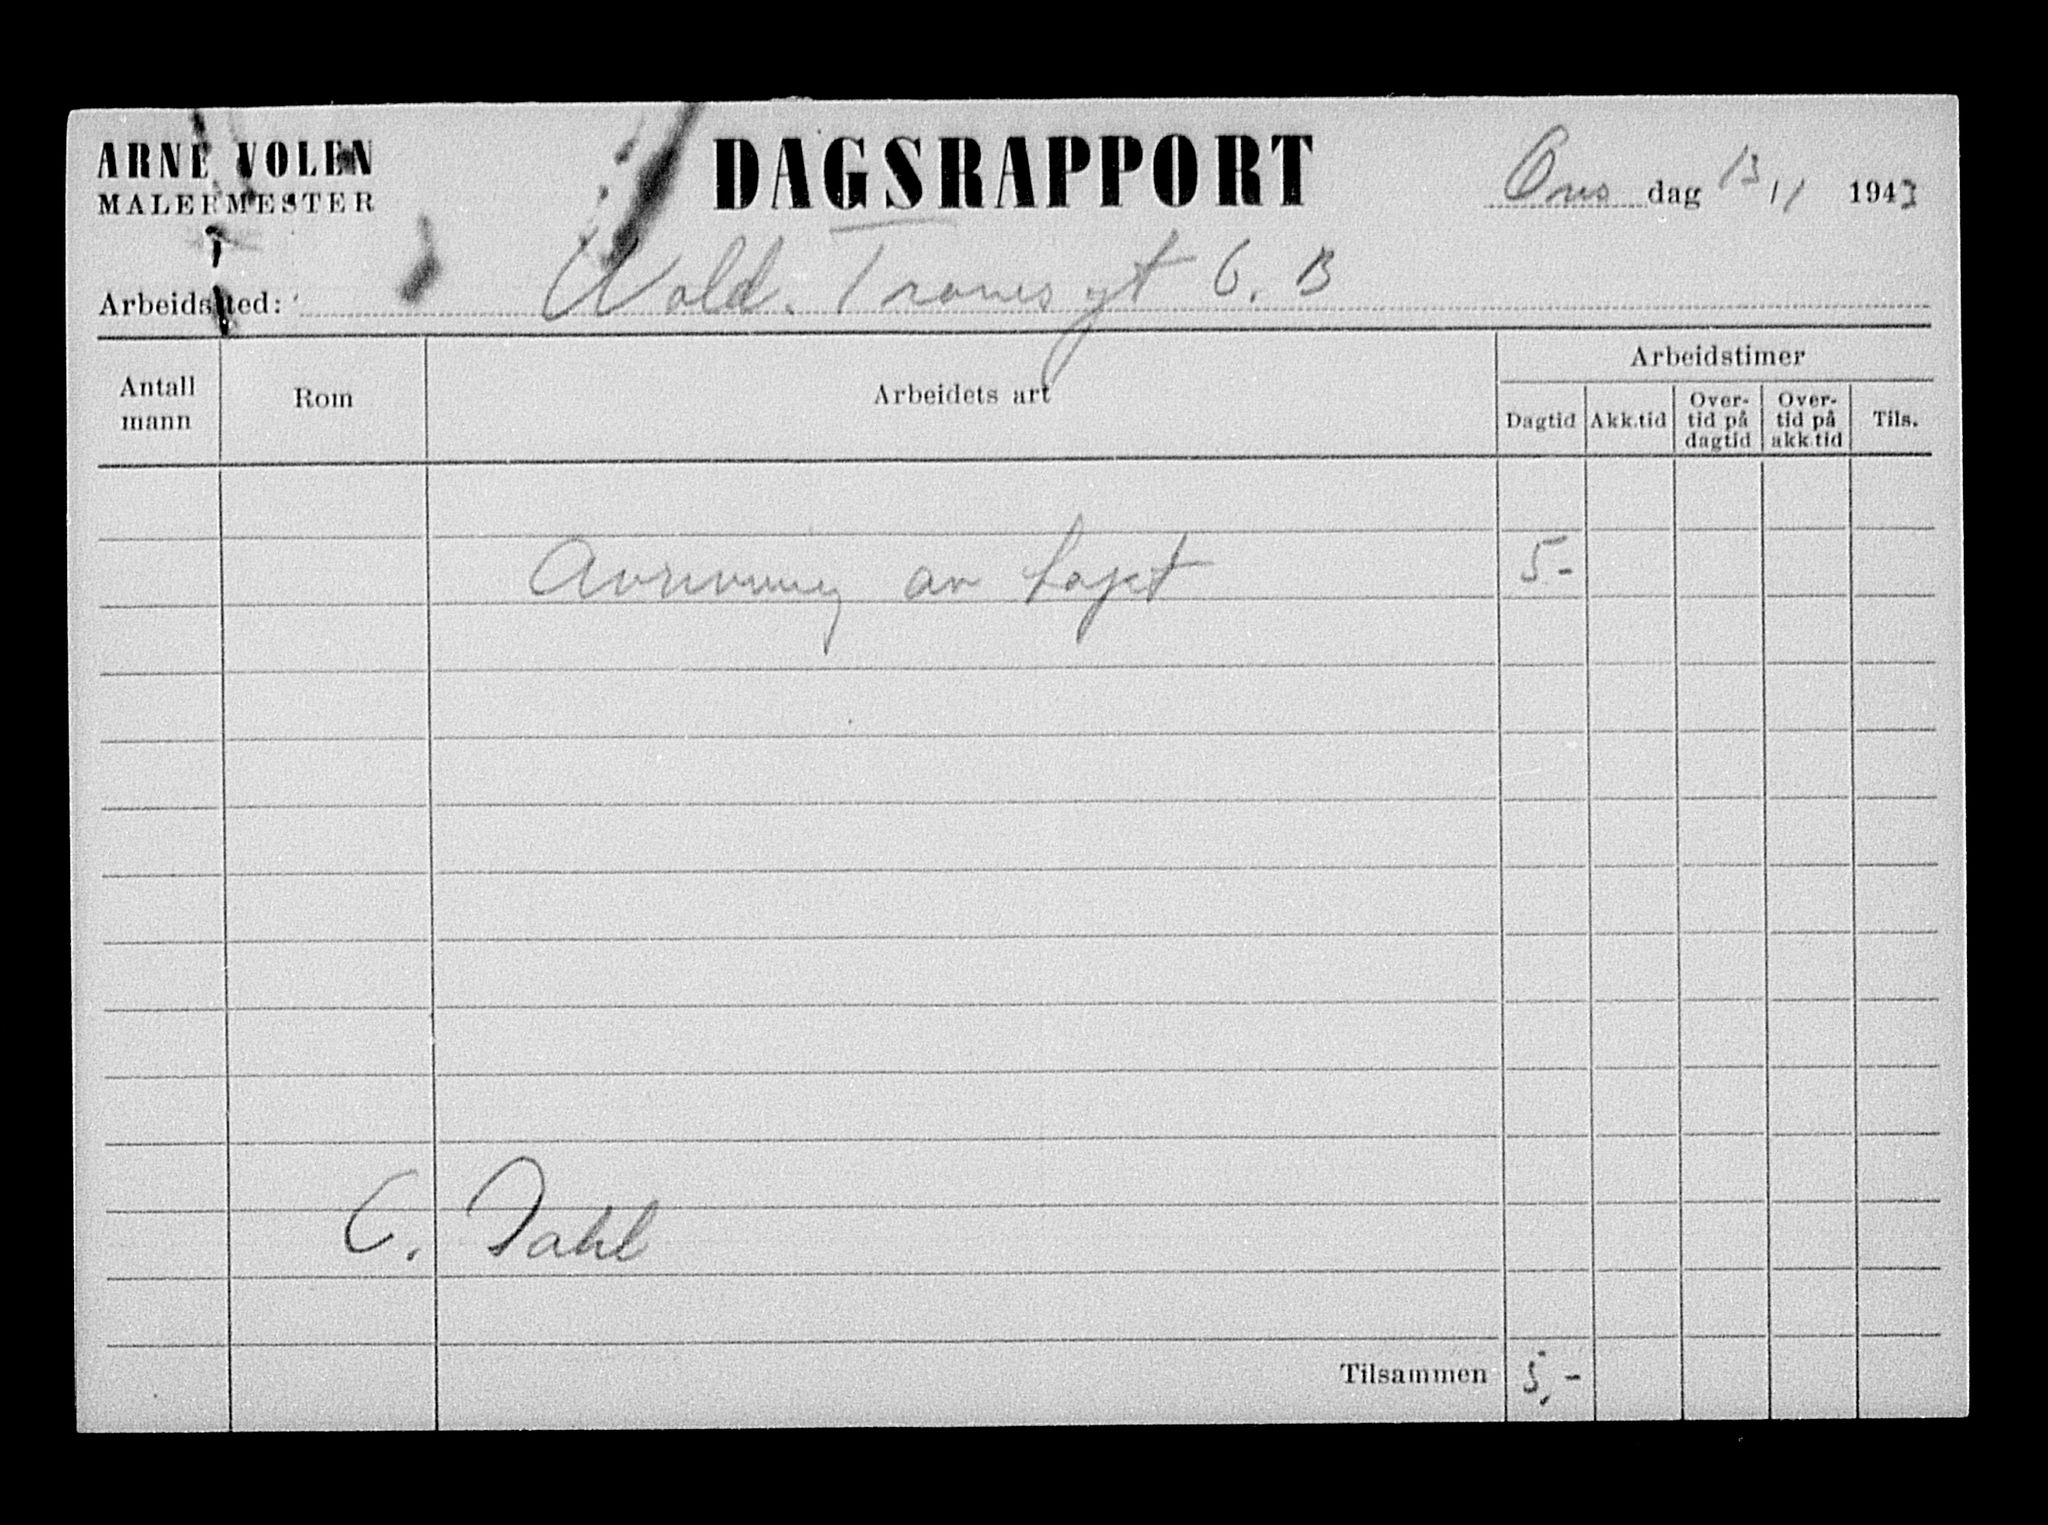 ARNE VOLEN
MALERMESTER
DAGSRAPPORT
Ons dag 13/1 1943
Arbeidssted: Wold. Tranes gt 6. B
Antall mann
Rom
Arbeidets art
Arbeidstimer
Dagtid
Akk.tid
Over-
tid på
dagtid
Over-
tid på
akk.tid
Tils.
Avrivning av tapet 5-
C. Dahl
Tilsammen 5,-